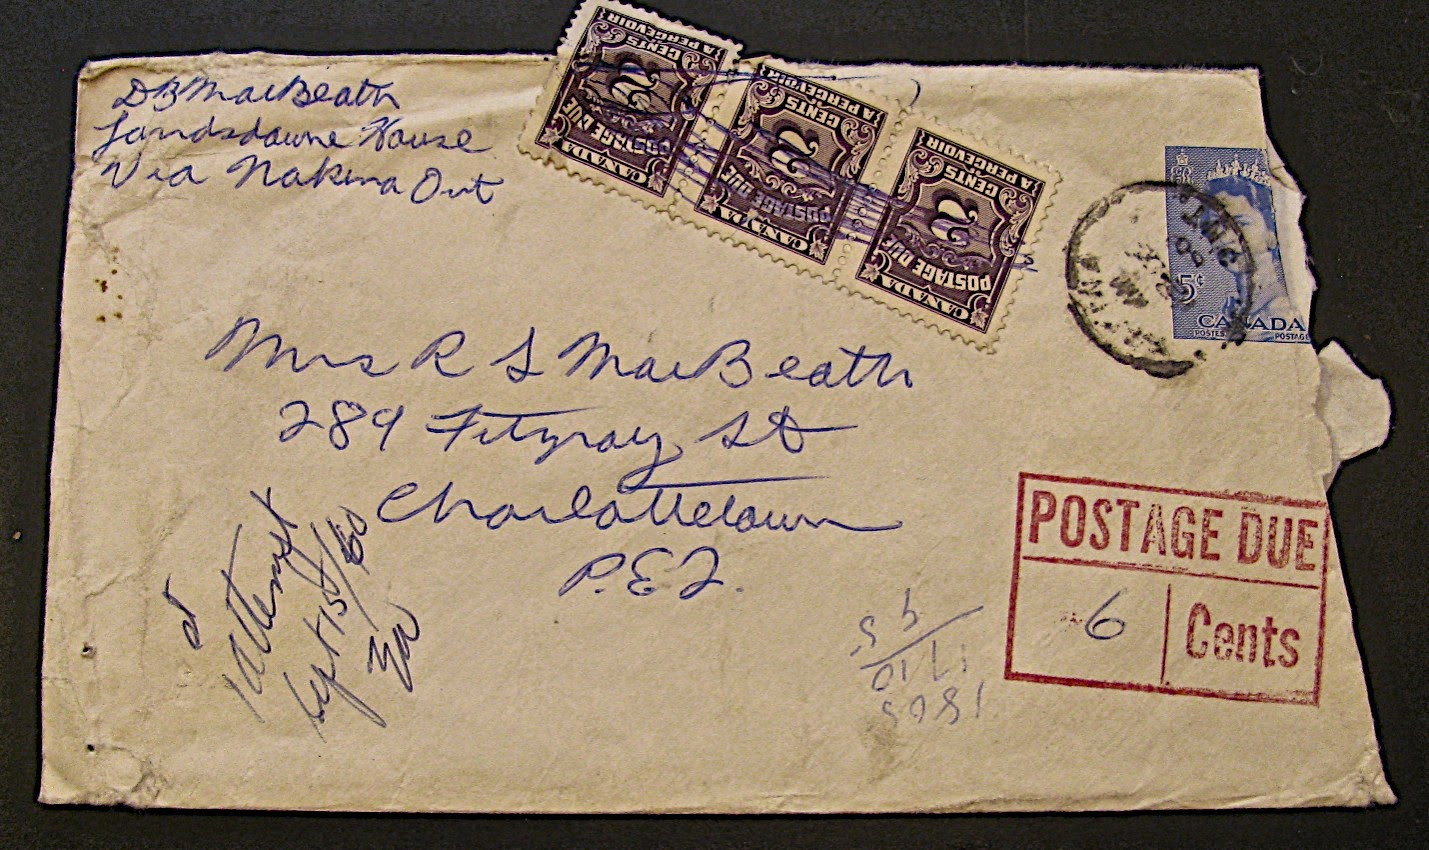 DB MacBeath
Landsdowne House
Via Nakina Ont
A PERCEVOIR
CENTS
2
POSTAGE DUE
CANADA
A PERCEVOIR
CENTS
2
POSTAGE DUE
CANADA
A PERCEVOIR
CENTS
2
POSTAGE DUE
CANADA
5¢
CANADA
POSTES POSTAGE
Mrs R S MacBeath
289 Fitzroy St
Charlottetown
P.E.I.
POSTAGE DUE
6 Cents
1 attempt
Sept 15/60